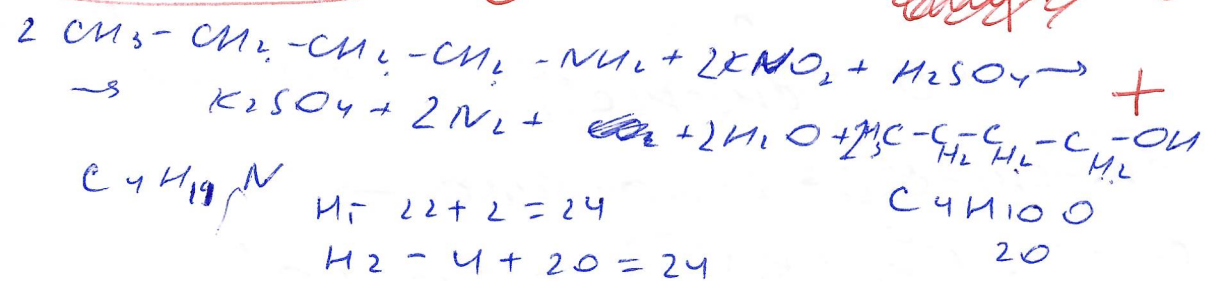 2 CH3-CH2-CH2-CH2-NH2+2KNO2+H2SO4→ +
→ K2SO4+2N2+ +2H2O+2H3C-CH2-CH2-CH2-OH
C4H11N
H1- 22+2=24
C4H10O
H2-4+20=24
20